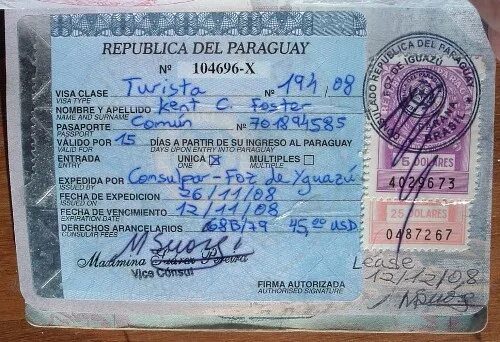 REPUBLICA DEL PARAGUAY
Nº 104696-X
VISA CLASE Turista Nº 194/08
VISA TYPE
NOMBRE Y APELLIDO Kent C. Foster
NAME AND SURNAME
PASAPORTE Común Nº 701894585
PASSPORT
VÁLIDO POR 15 DÍAS A PARTIR DE SU INGRESO AL PARAGUAY
VALID FOR DAYS UPON ENTRY INTO PARAGUAY
ENTRADA UNICA X MULTIPLES
ENTRY ONE MULTIPLE
EXPEDIDA POR Consulpar-Foz de Yguazú
ISSUED BY
FECHA DE EXPEDICION 26/11/08
ISSUED ON
FECHA DE VENCIMIENTO 12/11/08
EXPIRATION DATE
DERECHOS ARANCELARIOS 668B/79 45,00 USD
CONSULAR FEES
Maximina Suárez Pereira
Vice Cónsul
FIRMA AUTORIZADA
AUTHORISED SIGNATURE
CONSULADO REPUBLICA DEL PARAGUAY
FOZ DE IGUAZÚ
PARANA
BRASIL
5 DOLARES
4029673
25 DOLARES
0487267
Lease
12/12/08